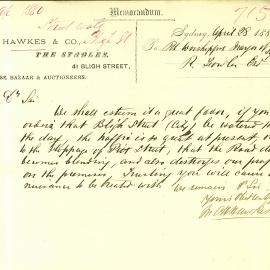 Memorandum.
HAWKES & CO.,
THE STABLES,
41 BLIGH STREET,
BAZAAR & AUCTIONEERS.
Sydney, April 28 188
To Rt Worshipful Mayor of
R. Fowler Esq
Dr Sir
We shall esteem it a great favor, if you
order that Bligh Street (City) be watered
the day, the traffic is so great at present,
to the stoppage of Pitt Street, that the Road
becomes blinding, and also destroys our
on the premises, Trusting you will cause
nuisance to be treated with
We remain Dr Sir
Yours